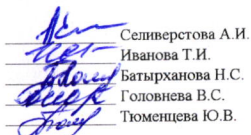 Селиверстова А.И.
Иванова Т.И.
Батырханова Н.С.
Головнева В.С.
Тюменцева Ю.В.